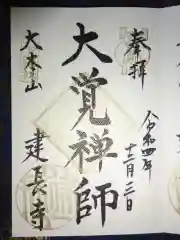 奉拝
令和四年
十二月三日
大覚禅師
大本山
建長寺